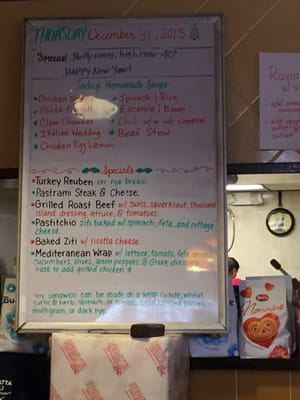 THURSDAY December 31, 2015
Forecast Partly sunny, high near 40°
HAPPY New Year!
Today's Homemade Soups
* Chicken Noodle * Spinach | Rice
* Pasta Fagioli * Escarole | Bean
* Clam Chowder * Chili w/ or w/o cheese
* Italian Wedding * Beef Stew
* Chicken Egg Lemon
Specials
* Turkey Reuben on rye bread
* Pastrami Steak & Cheese.
* Grilled Roast Beef w/ swiss, sauerkraut, thousand
island dressing, lettuce, & tomatoes.
* Pastitchio ziti baked w/ spinach, feta, and cottage
cheese.
* Baked Ziti w/ ricotta cheese.
* Mediterranean Wrap w/ lettuce, tomato, feta, onion,
cucumbers, olives, green peppers, & Greek dressing
*ask to add grilled chicken*
any sandwich can be made on a wrap (white, wheat,
garlic & herb, spinach, or tomato basil),
multigrain, or dark rye